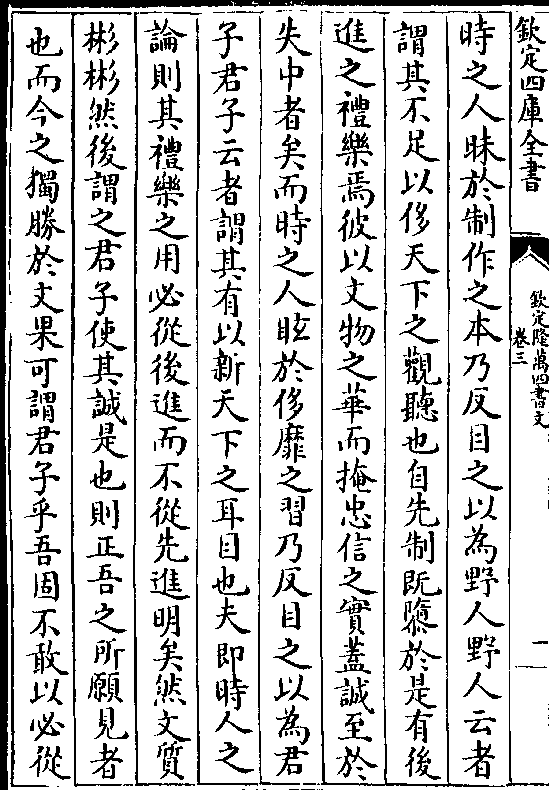 欽定四庫全書
欽定隆萬四書文
卷三
一
時之人昧於制作之本乃反目之以為野人野人云者
謂其不足以侈天下之觀聽也自先制既隳於是有後
進之禮樂焉彼以文物之華而掩忠信之實蓋誠至於
失中者矣而時之人眩於侈靡之習乃反目之以為君
子君子云者謂其有以新天下之耳目也夫即時人之
論則其禮樂之用必從後進而不從先進明矣然文質
彬彬然後謂之君子使其誠是也則正吾之所願見者
也而今之獨勝於文果可謂君子乎吾固不敢以必從